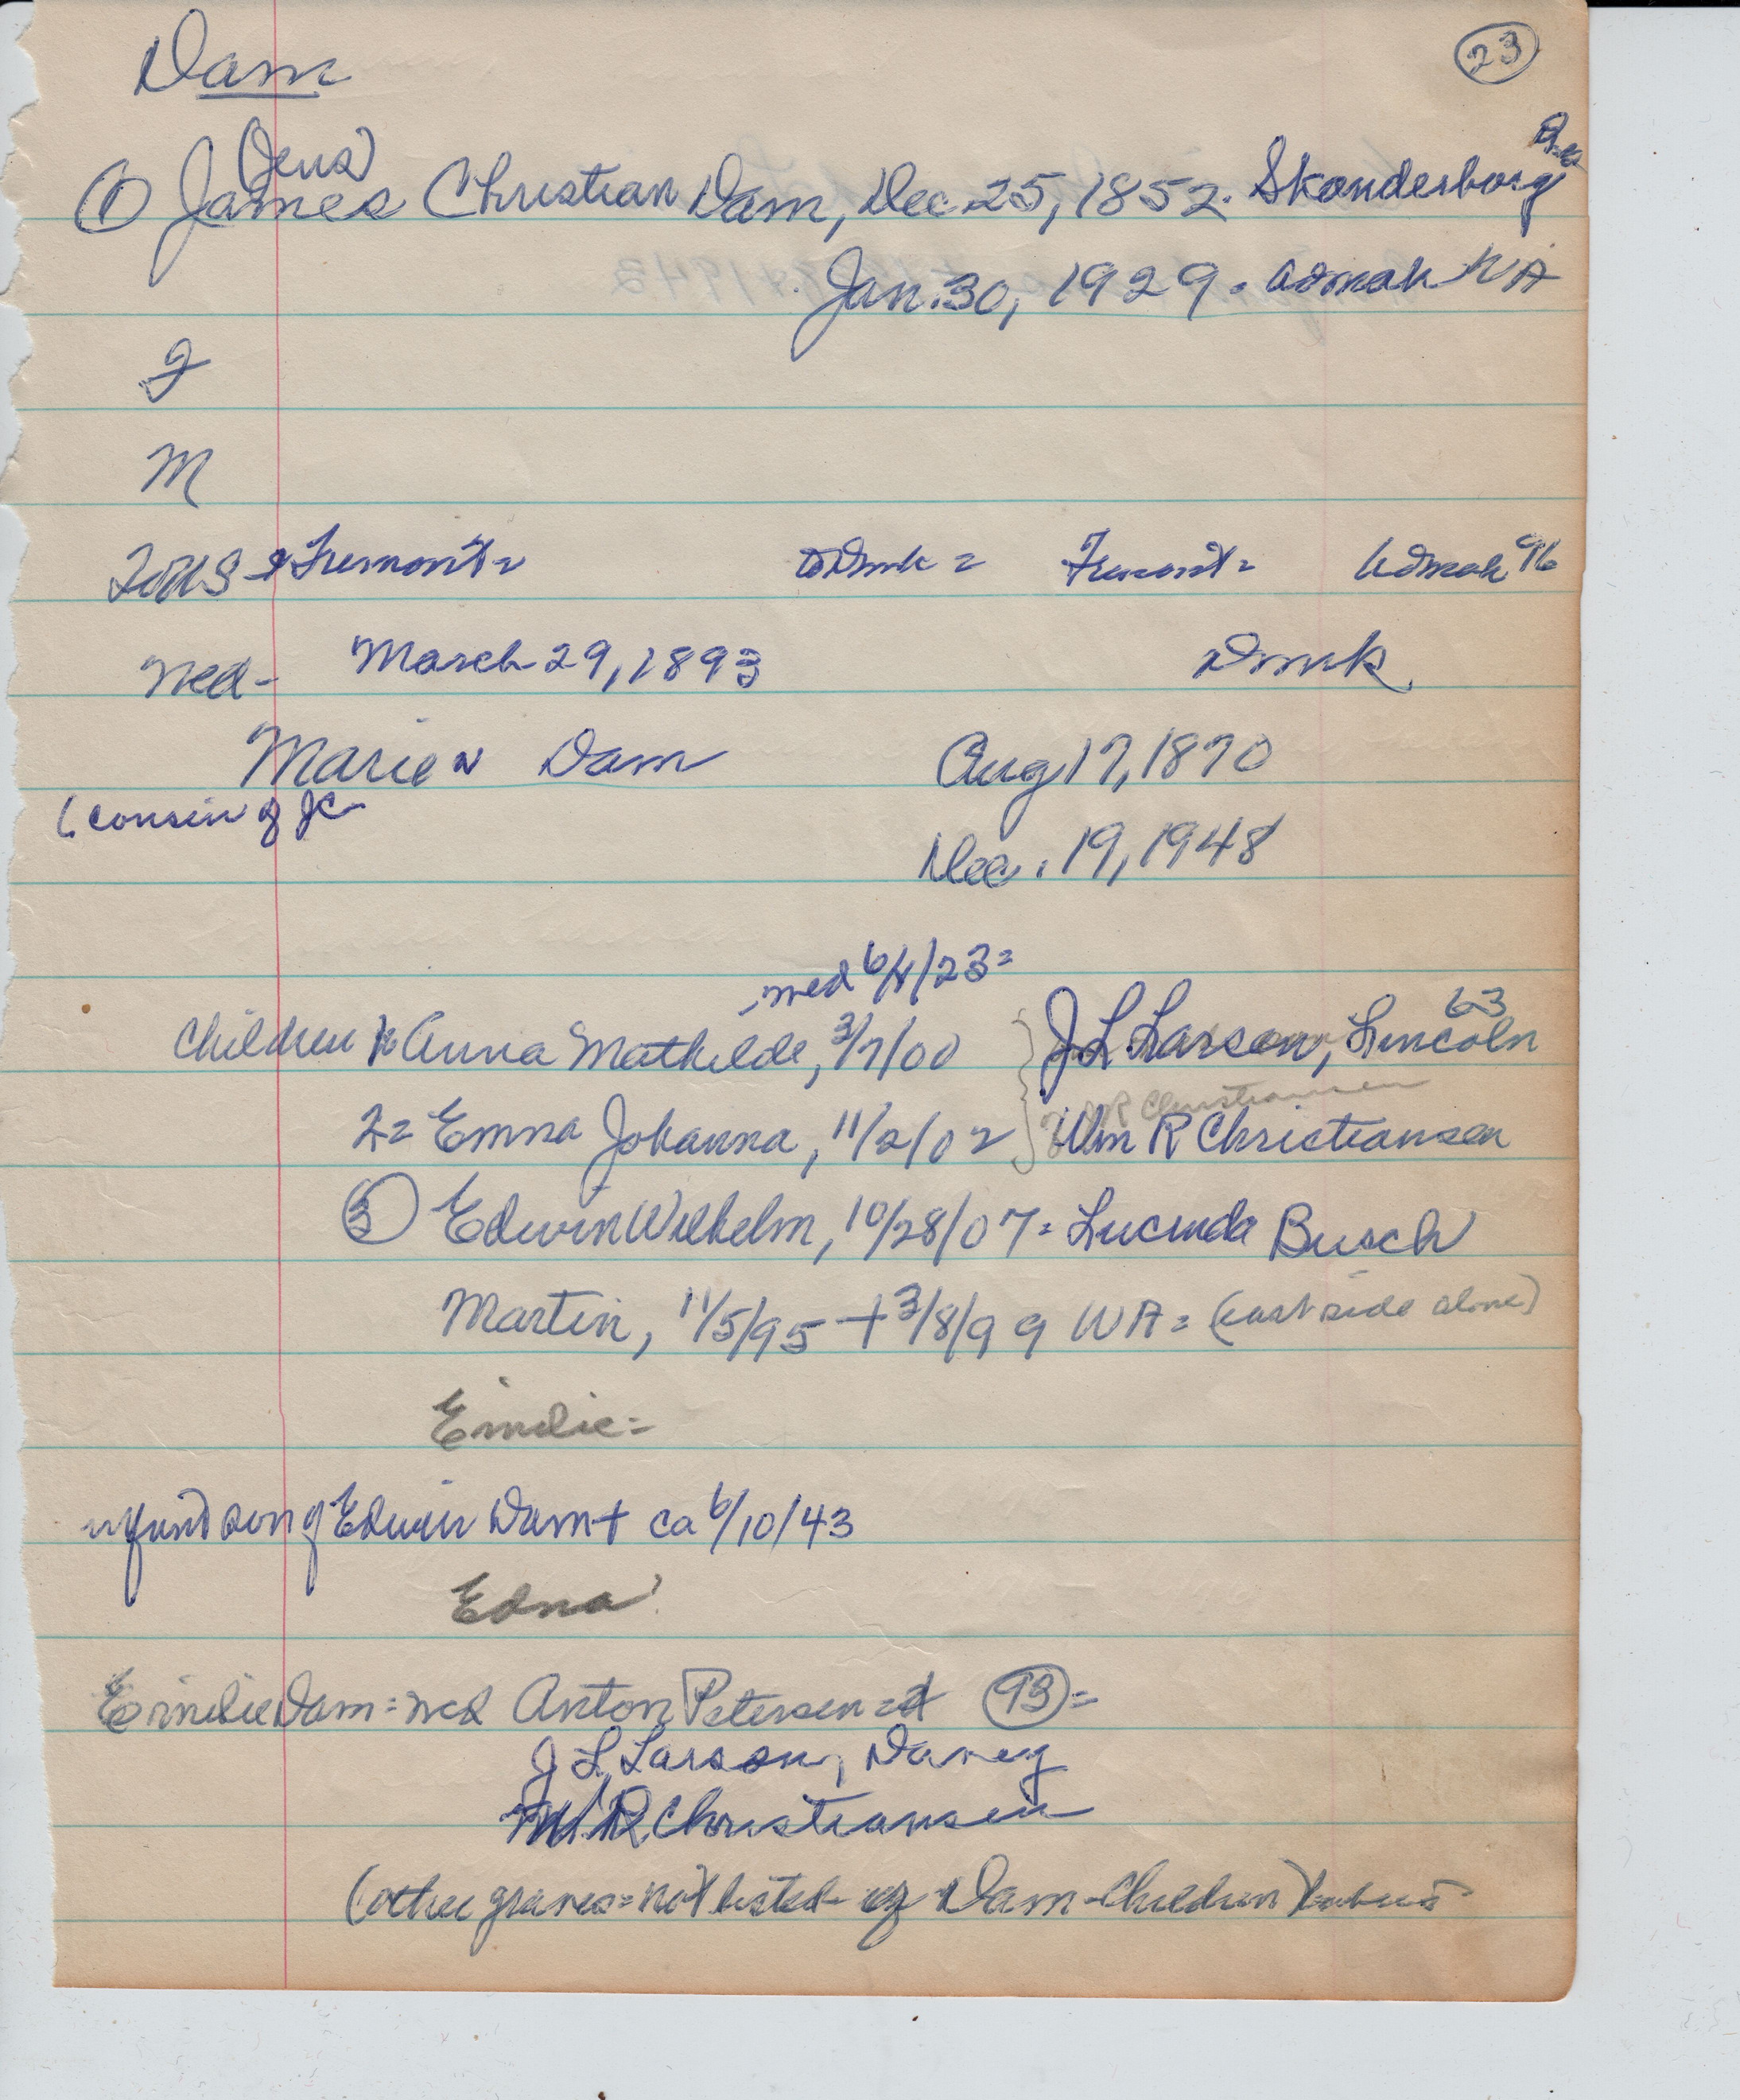 Dam
23
(Jens)
① James Christian Dam, Dec. 25, 1852. Skanderborg
Jan. 30, 1929. Admah WA
F
M
To US & Fremont = to Dmk = Fremont = Admah 96
Med - March 29, 1893 Dmk
Marie N Dam Aug 17, 1870
(cousin of JC
Dec. 19, 1948
med 6/4/23 =
63
Children 1= Anna Mathilde, 3/7/00 } J. L. Larson, Lincoln
R Christiansen
2= Emma Johanna, 11/2/02 Wm R Christiansen
③ Edwin Wilhelm, 10/28/07 = Lucinda Busch
Martin, 11/5/95 + 3/8/99 WA = (east side alone)
Emilie =
infant son of Edwin Dam + ca 6/10/43
Edna
Emilie Dam = med Anton Petersen 93 =
J L Larson, Davey
W. R. Christiansen
(other graves = not listed of Dam - Children)